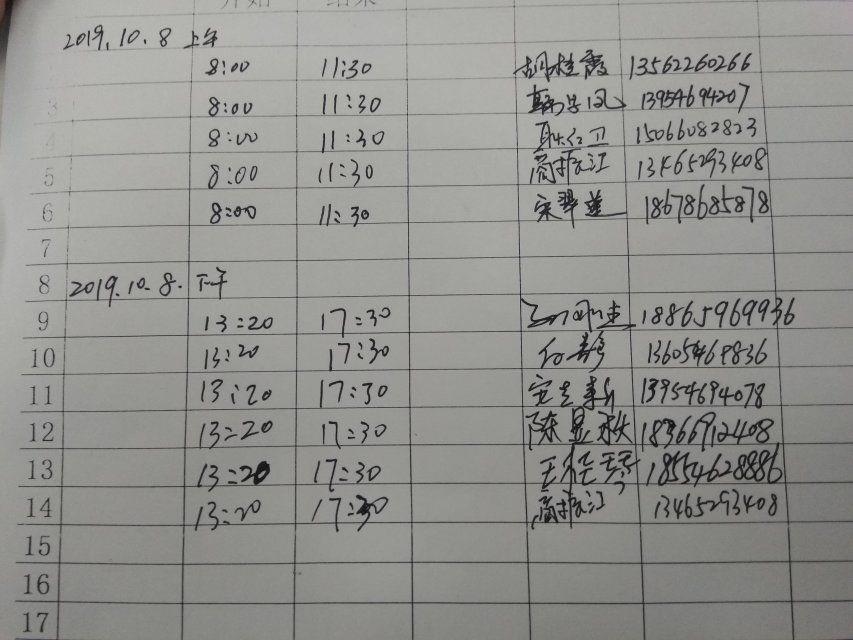 开始 结束
2019.10.8 上午
8:00 11:30 胡桂霞 13562260266
3 8:00 11:30 13954694207
4 8:00 11:30 耿红卫 15066082823
5 8:00 11:30 商振江 13465293408
6 8:00 11:30 宋翠莲 18678685878
7
8 2019.10.8. 下午
9 13:20 17:30 18865969936
10 13:20 17:30 13605469836
11 13:20 17:30 13954694078
12 13:20 17:30 陈显秋 18366912408
13 13:20 17:30 18554628886
14 13:20 17:30 商振江 13465293408
15
16
17